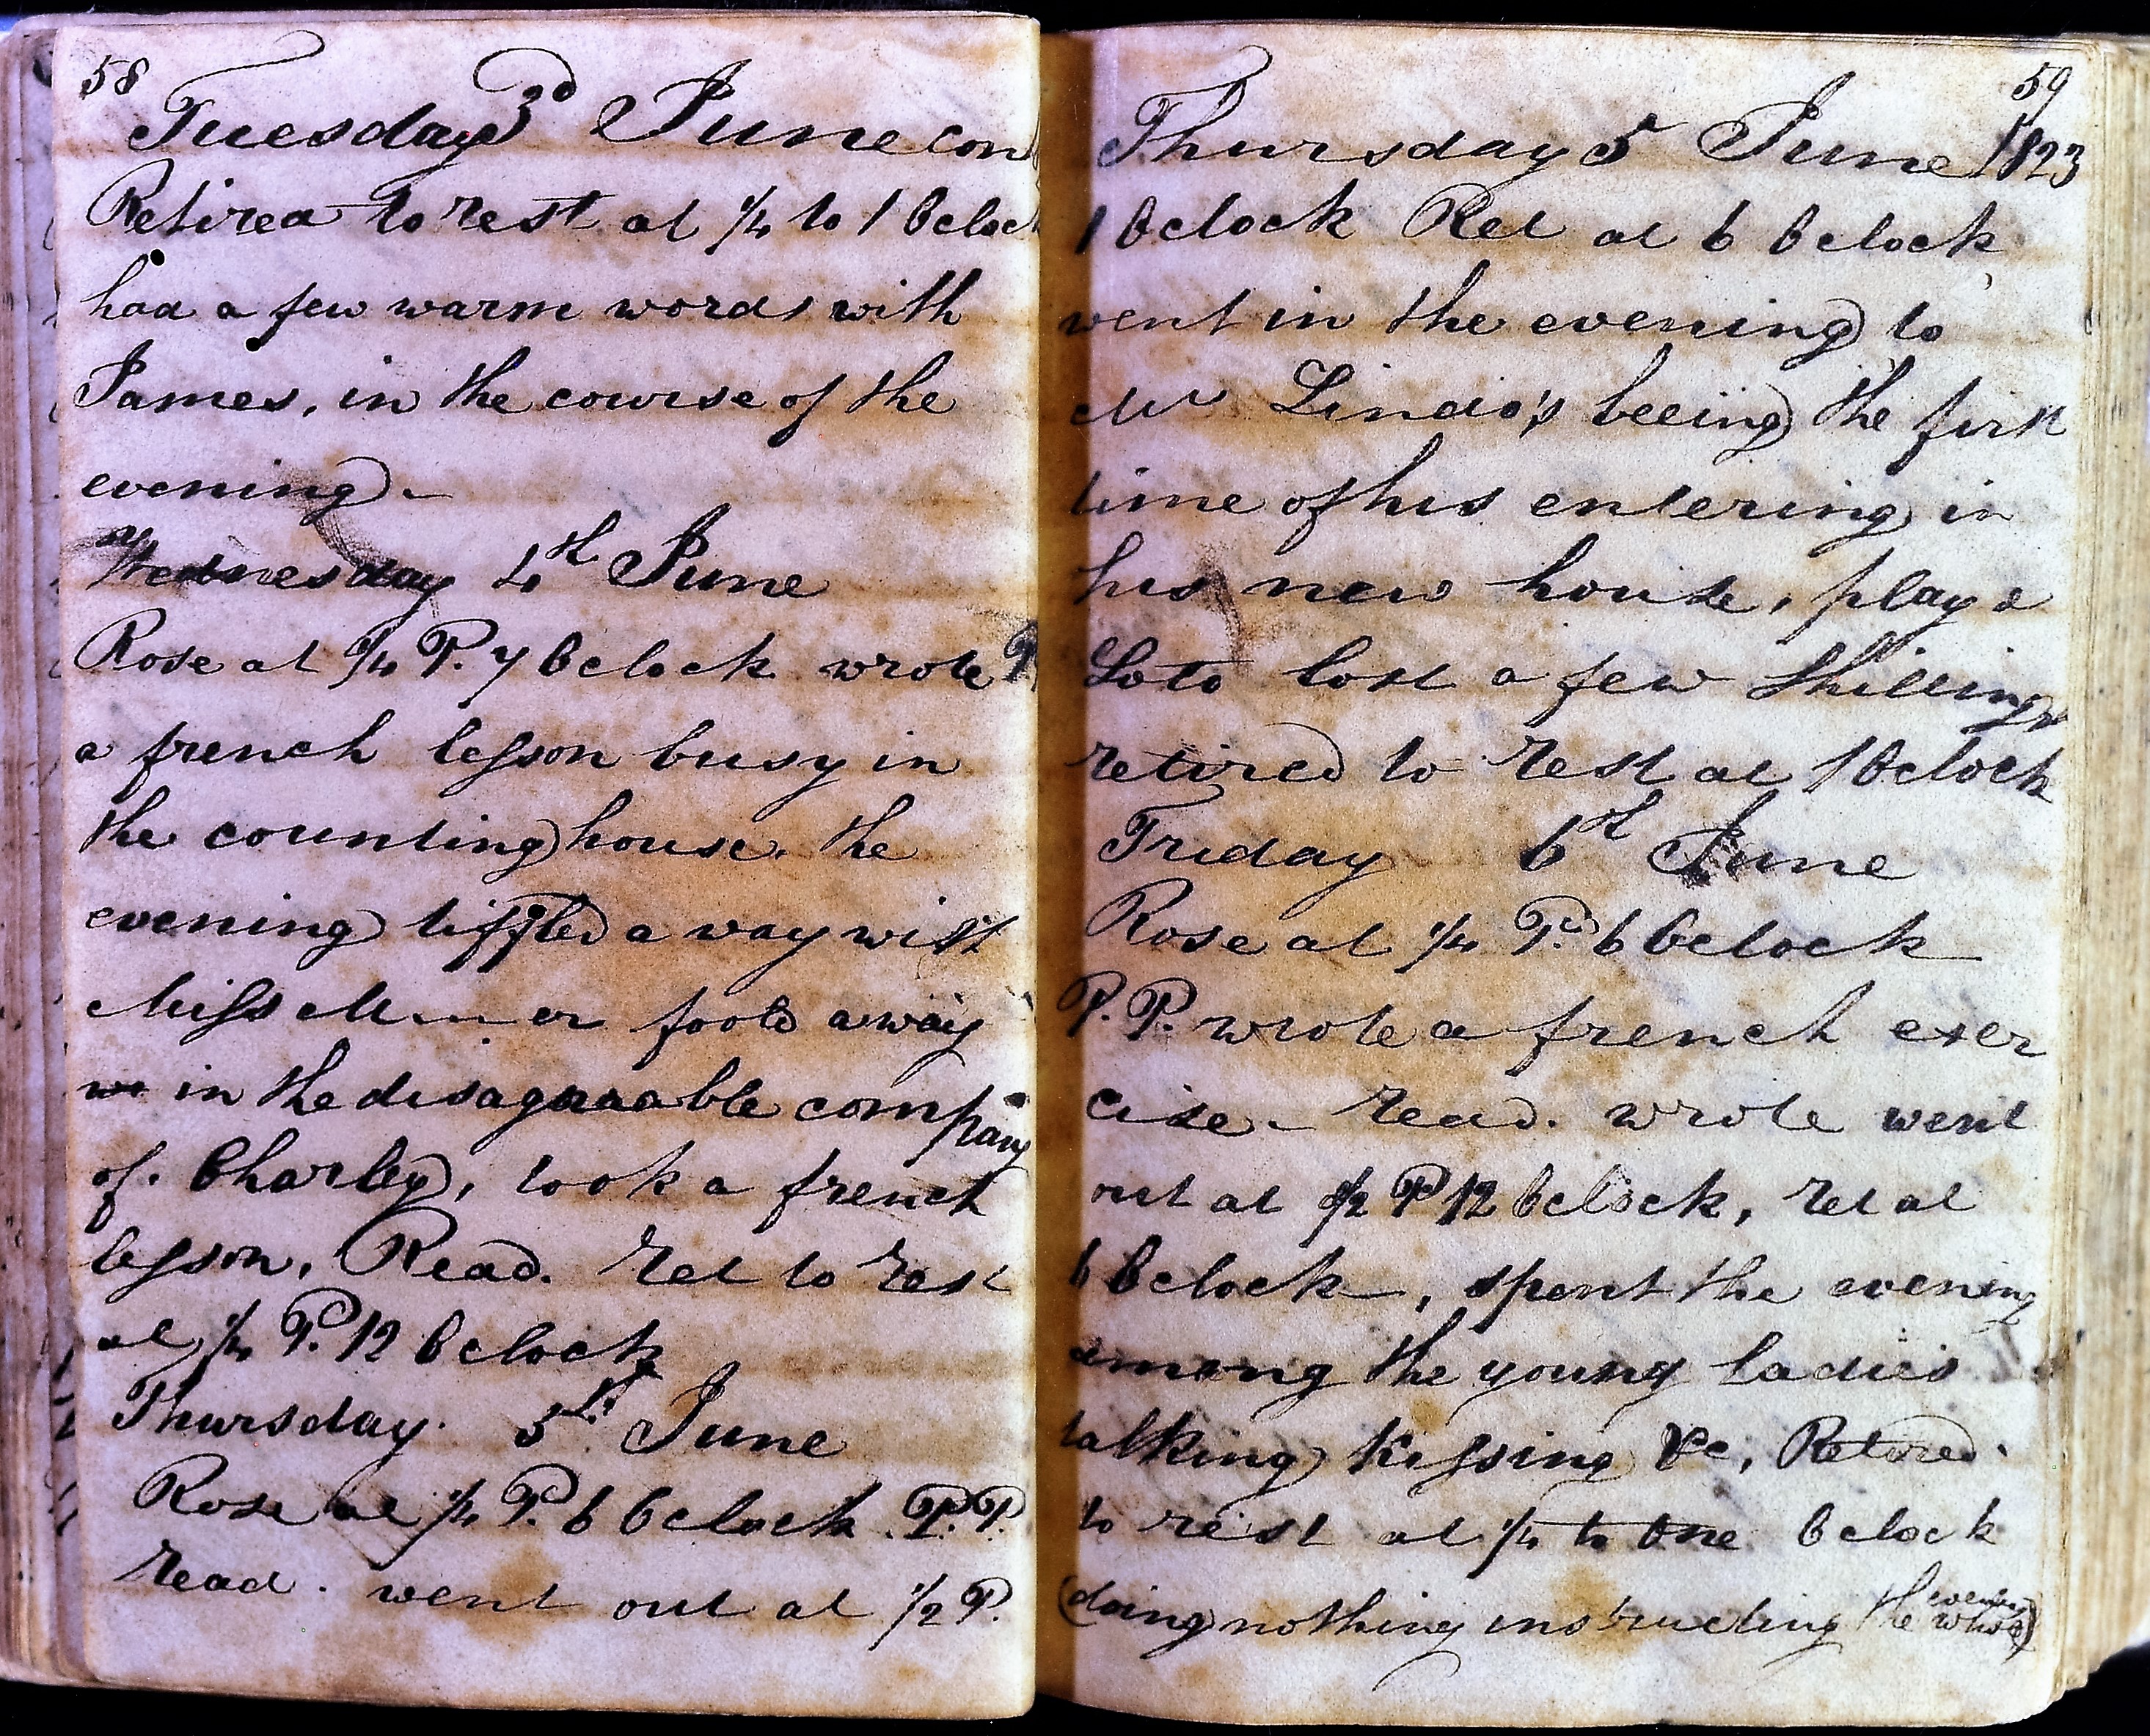 58
Tuesday 3d June con
Retired to rest at 1/4 to 1 Oclock
had a few warm words with
James, in the course of the
evening -
Wednesday 4th June
Rose at 1/4 P. 7 Oclock wrote P
a french lesson busy in
the counting house. the
evening tiffled a way with
Miss M er foold away
in the disagreeable company
of. Charley, took a french
lesson, Read. Ret to rest
at 1/4 P. 12 Oclock
Thursday. 5th June
Rose at 1/4 P. 6 Oclock P.P.
read. went out at 1/2 P.
59
Thursday 5 June 1823
1 Oclock Ret at 6 Oclock
went in the evening to
Mr Lindo's beeing the first
time of his entering in
his new house, playd
Loto lost a few shillings
retired to rest at 1 Oclock
Friday 6th June
Rose at 1/4 P. 6 Oclock
P.P. wrote a french exer
cise - read. wrote went
out at 1/2 P 12 Oclock, ret at
6 Oclock, spent the evening
among the young ladies
talking kissing &c, Retired
to rest at 1/4 to One Oclock
(doing nothing instructing the whole evening)